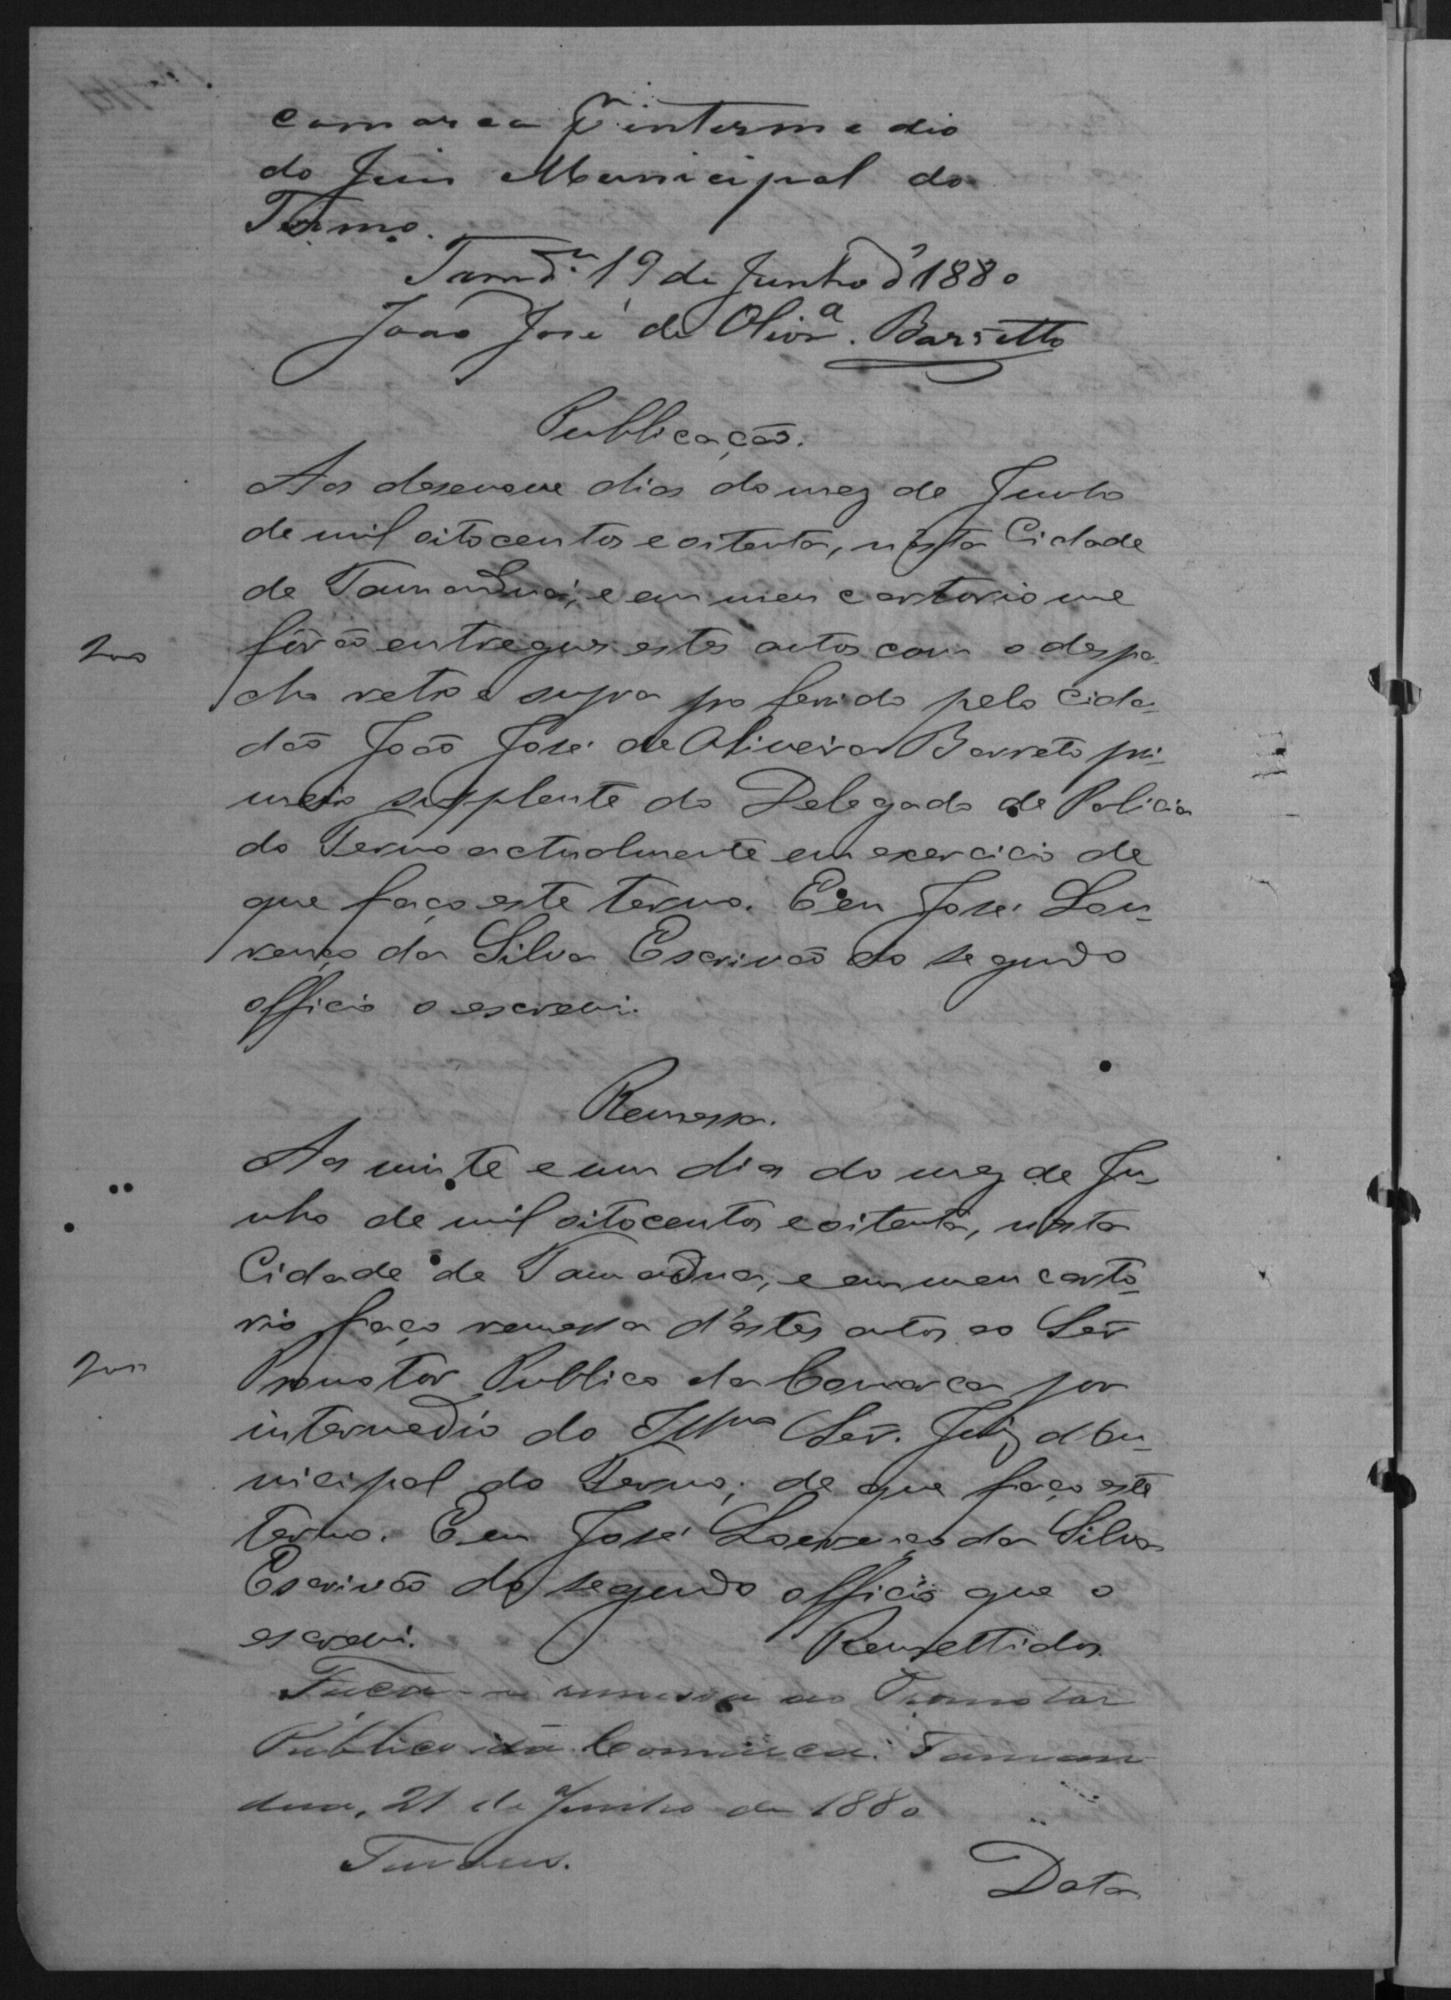 comarca pr intermedio
do Juis Municipal do
Termo.
Tamd.ª 19 de Junho d' 1880
João José de Olivrª. Barretto
Publicação.
Aos desenove dias do mez de Junho
de mil oitocentos e oitenta, n'esta Cidade
de Tamanduá, e em meu cartorio me
forão entregues estes autos com o despa-
cho retro e supra proferido pelo Cida-
dão João José de Oliveira Barreto pri-
meiro supplente do Delegado de Policia
do Termo actualmente em exercicio de
que faço este termo. E eu José Lou-
renço da Silva Escrivão do segundo
officio o escrevi.
Remessa.
Aos vinte e um dia do mez de Ju-
nho de mil oitocentos e oitenta, n'esta
Cidade de Tamandua, e em meu carto-
rio faço remessa d'estes autos ao Señr
Promotor Publico da Comarca por
intermedio do Illmo Señr. Juiz Mu-
nicipal do Termo, de que faço este
termo. E eu José Lourenço da Silva
Escrivão do segundo officio que o
escrevi. Remettidos
Faça-se remessa ao Promotor
Publico da Comarca. Taman
dua, 21 de Junho de 1880
Data